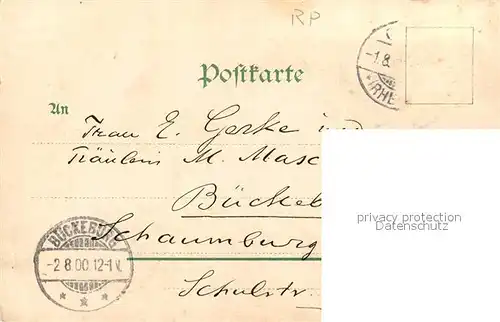 RP
-1.8.
(RHE
Postkarte
An
Frau E. Gerke und
Fräulein M. Masc
Bückeb
Schaumburg
Schulstr.
BÜCKEBURG
-2.8.00.12-1 V.
* * *
privacy protection
Datenschutz